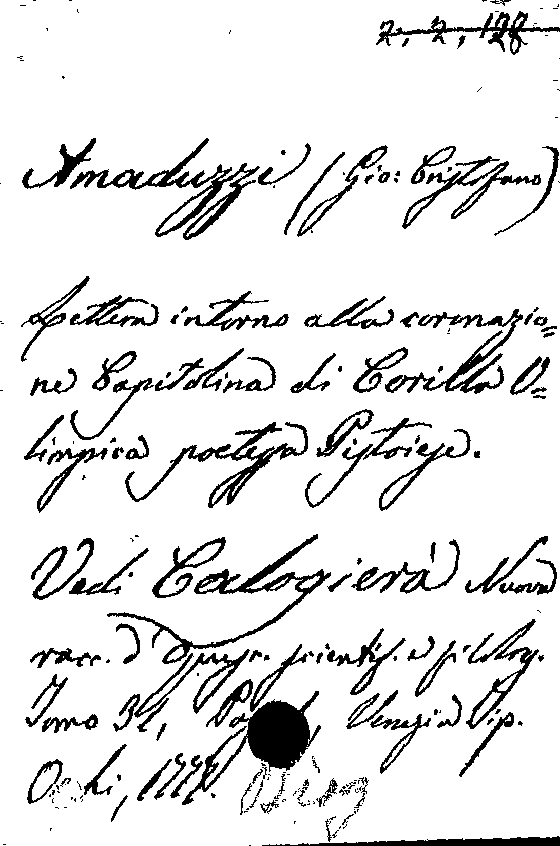 2, 2, 128
Amaduzzi (Gio: Cristofano)
Lettera intorno alla coronazio=
ne Capitolina di Corilla O=
limpica poetessa Pistoiese.
Vedi Calogierà Nuova
racc. d'Opusc. scientif. e filolog.
Tomo 31, Venezia Tip.